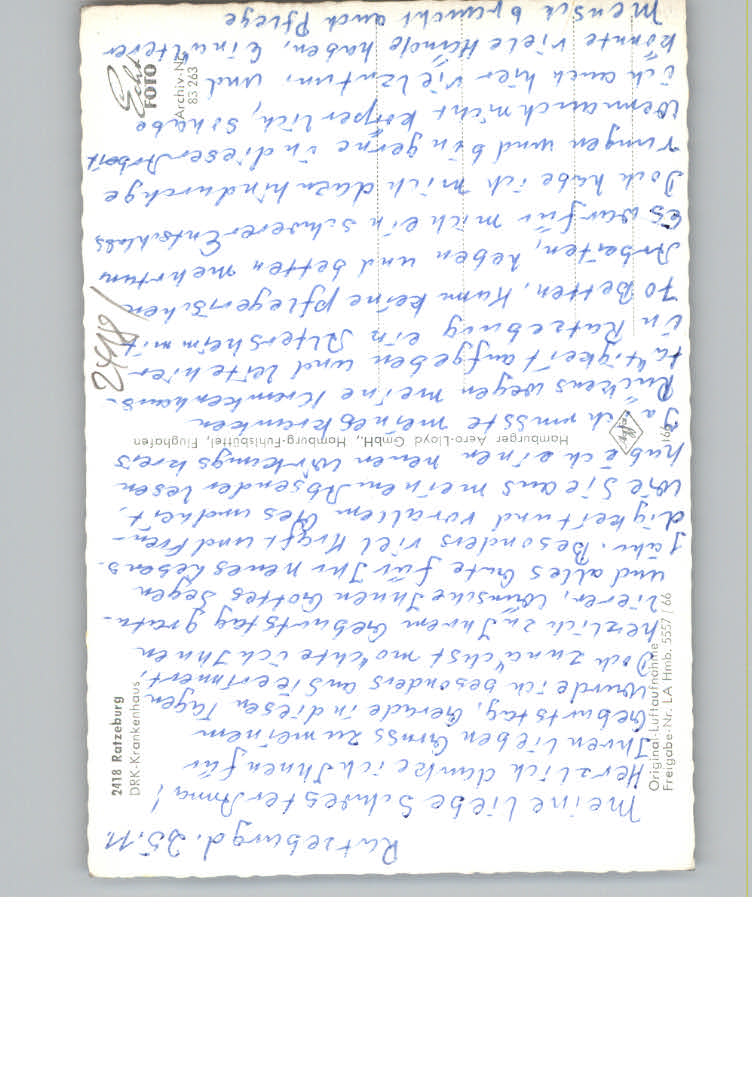 Ratzeburg d. 25.11.
Meine liebe Schwester Anna!
Herzlich danke ich Ihnen für
Ihren lieben Gruss zu meinem
Geburtstag, Gerade in diesen Tagen
wurde ich besonders an Sie erinnert,
Doch zunächst möchte ich Ihnen
herzlich zu Ihrem Geburtstag gratu-
lieren, Wünsche Ihnen Gottes Segen
und alles Gute für Ihr neues Lebens-
jahr. Besonders viel Kraft und Freu-
digkeit und vorallem Gesundheit,
Wie Sie aus meinem Absender lesen
habe ich einen neuen Wirkungskreis
Ja ich musste meines kranken
Rückens wegen meine Krankenhaus-
tätigkeit aufgeben und leite hier
in Ratzeburg ein Altersheim mit
70 Betten, Kann keine pflegerischen
Arbeiten, heben und betten mehr tun
Es war für mich ein schwerer Entschluss
Doch habe ich mich dazu hindurchge
rungen und bin gerne in dieser Arbeit
Wenn auch nicht körperlich, so habe
ich auch hier viel zu tun, und
könnte viele Hände haben, Ein älterer
Mensch braucht auch Pflege
2418 Ratzeburg
DRK-Krankenhaus
Original-Luftaufnahme
Freigabe-Nr. LA Hmb. 5557/66
Hamburger Aero-Lloyd GmbH., Hamburg-Fuhlsbüttel, Flughafen
166
Echt
FOTO
Archiv-Nr.
83 263
2418/